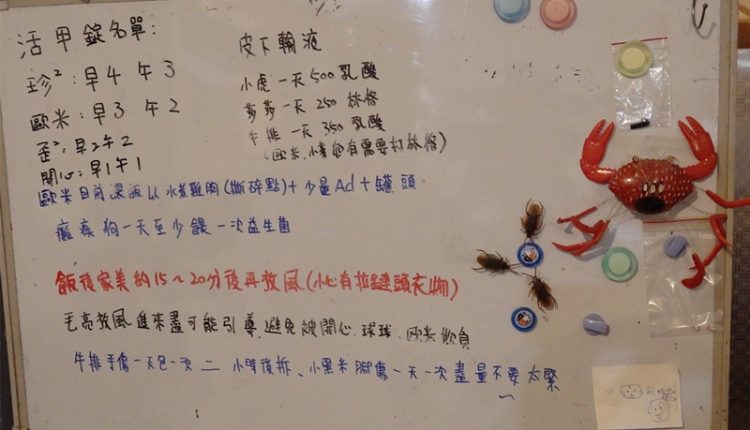 活甲錠名單:
珍²:早4 午3
歐米:早3 午2
歪²:早2午2
開心:早1午1
皮下輸液
小虎一天500乳酸
莎莎一天 250 林格
牛排一天 350 乳酸
(歐米、小 有需要打林格)
歐米目前 飯以水煮雞胸(撕碎點)+少量Ad+罐頭
癱瘓狗一天至少餵一次益生菌
飯後家美約15~20分後再放風(小心有拉鏈頭衣物)
毛亮放風進來盡可能引導,避免被開心、球球、歐米 食
牛排手傷一天包一次 二小時後拆、小黑米腳傷一天一次盡量不要太緊
小